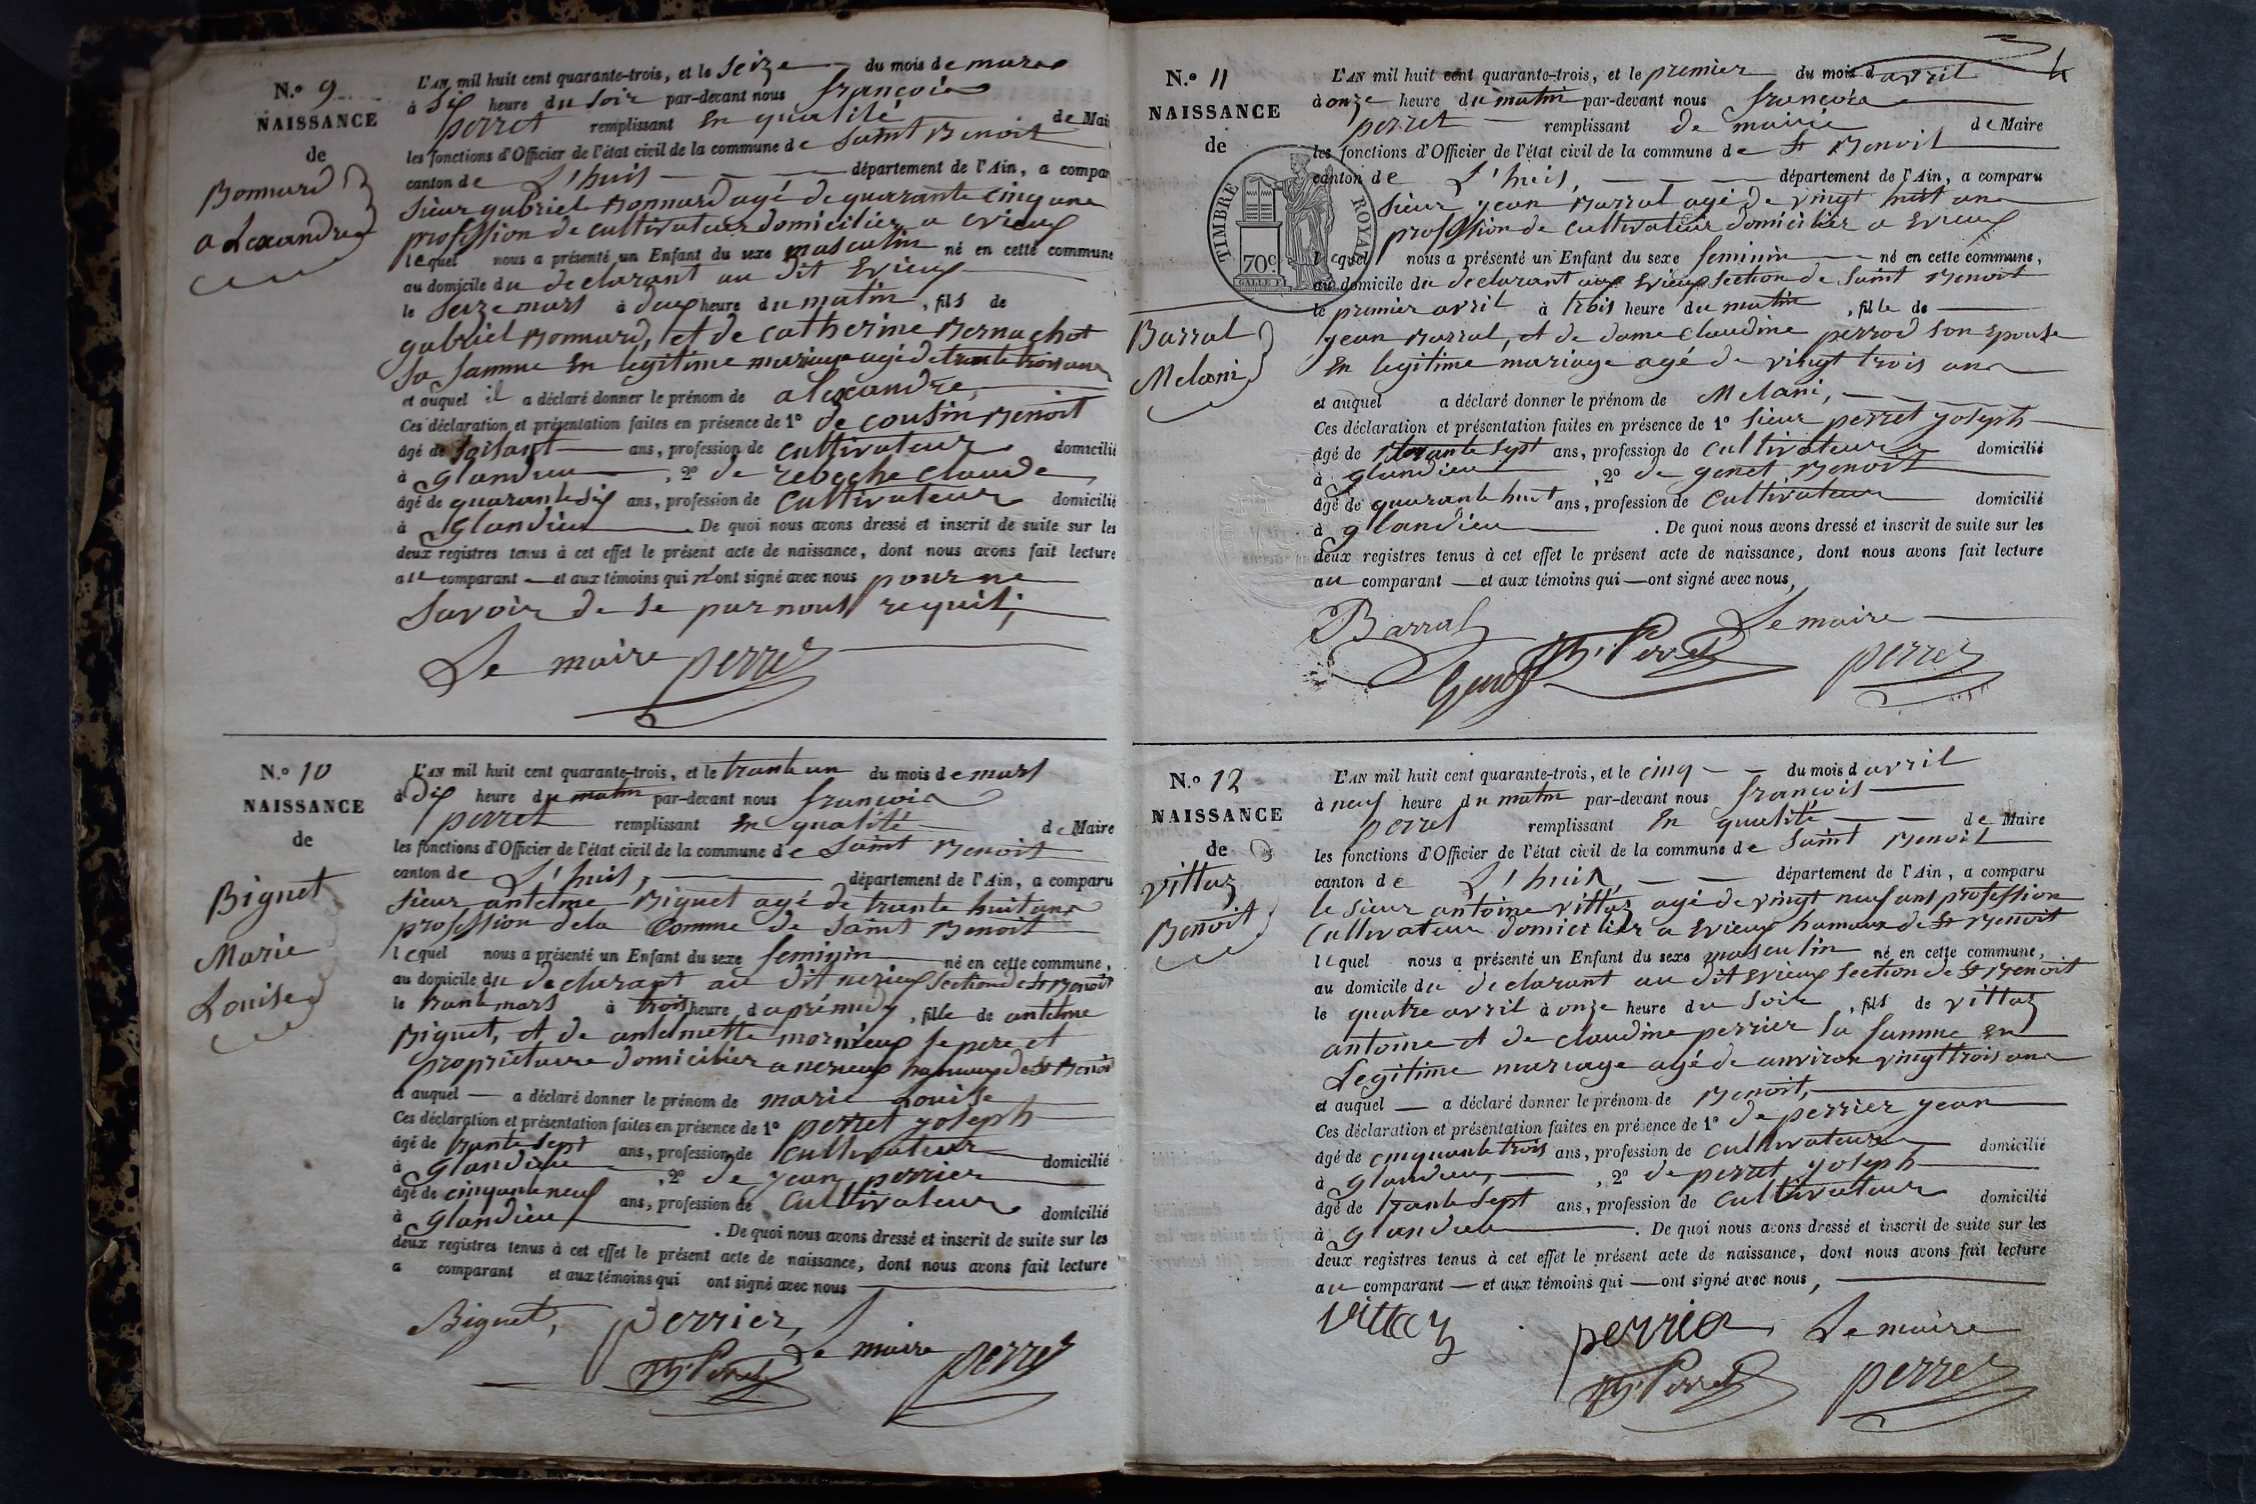 N.o 9
NAISSANCE
de
Bonnard
alexandre
L'AN mil huit cent quarante-trois, et le seize du mois de mars
à Six heure du soir par-devant nous françois
perret remplissant en qualité de Mai
les fonctions d'Officier de l'état civil de la commune de Saint Benoit
canton de L'huis département de l'Ain, a compar
Sieur gabriel Bonnard agé de quarante cinq ans
profession de cultivateur domicilier a evieux
lequel nous a présenté un Enfant du sexe masculin né en cette commune
au domicile du declarant au dit Evieux
le Seize mars à deux heure du matin, fils de
gabriel Bonnard, et de catherine Bernachot
sa famme en legitime mariage agé de trante trois ans
et auquel il a déclaré donner le prénom de alexandre,
Ces déclaration et présentation faites en présence de 1o de cousin Benoit
âgé de soisant ans, profession de cultivateur domicilié
à glandieu, 2o de reboche claude
âgé de quarante six ans, profession de cultivateur domicilié
à glandieu. De quoi nous avons dressé et inscrit de suite sur les
deux registres tenus à cet effet le présent acte de naissance, dont nous avons fait lecture
au comparant et aux témoins qui n'ont signé avec nous pour ne
savoir de se par nous requis;
Le maire perret
N.o 10
NAISSANCE
de
Biguet
Marie
Louise
L'AN mil huit cent quarante-trois, et le trante un du mois de mars
à dix heure du matin par-devant nous françois
perret remplissant en qualité de Maire
les fonctions d'Officier de l'état civil de la commune de Saint Benoit
canton de L'huis, département de l'Ain, a comparu
Sieur antelme Biguet agé de trante huit ans
profession dela Comme de Saint Benoit
lequel nous a présenté un Enfant du sexe feminin né en cette commune,
au domicile du declarant au dit nerieux section de St Benoit
le trante mars à trois heure d aprémidy, fille de antelme
Biguet, et de antelmette mornieux le pere et
propriettaire domicilier a nerieux hameaux de St Benoit
et auquel a déclaré donner le prénom de marie Louise
Ces déclaration et présentation faites en présence de 1o perret joseph
âgé de trante sept ans, profession de cultivateur domicilié
à glandieu, 2o de jean perrier
âgé de cinquante neuf ans, profession de cultivateur domicilié
à glandieu. De quoi nous avons dressé et inscrit de suite sur les
deux registres tenus à cet effet le présent acte de naissance, dont nous avons fait lecture
a comparant et aux témoins qui ont signé avec nous
Biguet, perrier,
Le maire
Jh. Perret perret
4
N.o 11
NAISSANCE
de
TIMBRE ROYAL
70c
Barral
Melani
L'AN mil huit cent quarante-trois, et le premier du mois d avril
à onze heure du matin par-devant nous françois
perret remplissant de mairie de Maire
les fonctions d'Officier de l'état civil de la commune de St Benoit
canton de L'huis, département de l'Ain, a comparu
Sieur jean Barral agé de vingt huit ans
profession de cultivateur domicilier a Evieux
lequel nous a présenté un Enfant du sexe feminin né en cette commune,
au domicile du declarant aux Evieux section de Saint Benoit
le premier avril à trois heure du matin, fille de
jean Barral, et de dame claudine perrod son epouse
en legitime mariage agé de vingt trois ans
et auquel a déclaré donner le prénom de Melani,
Ces déclaration et présentation faites en présence de 1o Sieur perret joseph
âgé de trante sept ans, profession de cultivateur domicilié
à glandieu, 2o de genet Benoit
âgé de quarante huit ans, profession de cultivateur domicilié
à glandieu. De quoi nous avons dressé et inscrit de suite sur les
deux registres tenus à cet effet le présent acte de naissance, dont nous avons fait lecture
au comparant et aux témoins qui ont signé avec nous,
Barral Le maire
Jh. Perret perret
N.o 12
NAISSANCE
de
vittoz
Benoit
L'AN mil huit cent quarante-trois, et le cinq du mois d avril
à neuf heure du matin par-devant nous françois
perret remplissant en qualité de Maire
les fonctions d'Officier de l'état civil de la commune de Saint Benoit
canton de L'huis département de l'Ain, a comparu
le sieur antoine vittoz agé de vingt neuf ans profession
cultivateur domicilier a Evieux hamaux de St Benoit
lequel nous a présenté un Enfant du sexe masculin né en cette commune,
au domicile du declarant au dit Evieux section de St Benoit
le quatre avril à onze heure du soir, fils de vittoz
antoine et de claudine perrier sa famme en
Legitime mariage agé de anviron vingt trois ans
et auquel a déclaré donner le prénom de Benoit,
Ces déclaration et présentation faites en présence de 1o de perrier jean
âgé de cinquante trois ans, profession de cultivateur domicilié
à glandieu, 2o de perret joseph
âgé de trante sept ans, profession de cultivateur domicilié
à glandieu. De quoi nous avons dressé et inscrit de suite sur les
deux registres tenus à cet effet le présent acte de naissance, dont nous avons fait lecture
au comparant et aux témoins qui ont signé avec nous,
vittoz perrier Le maire
Jh. Perret perret